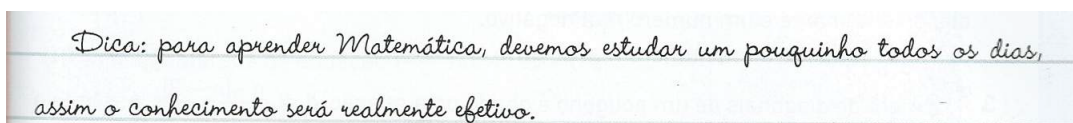 Dica: para aprender Matemática, devemos estudar um pouquinho todos os dias,
assim o conhecimento será realmente efetivo.